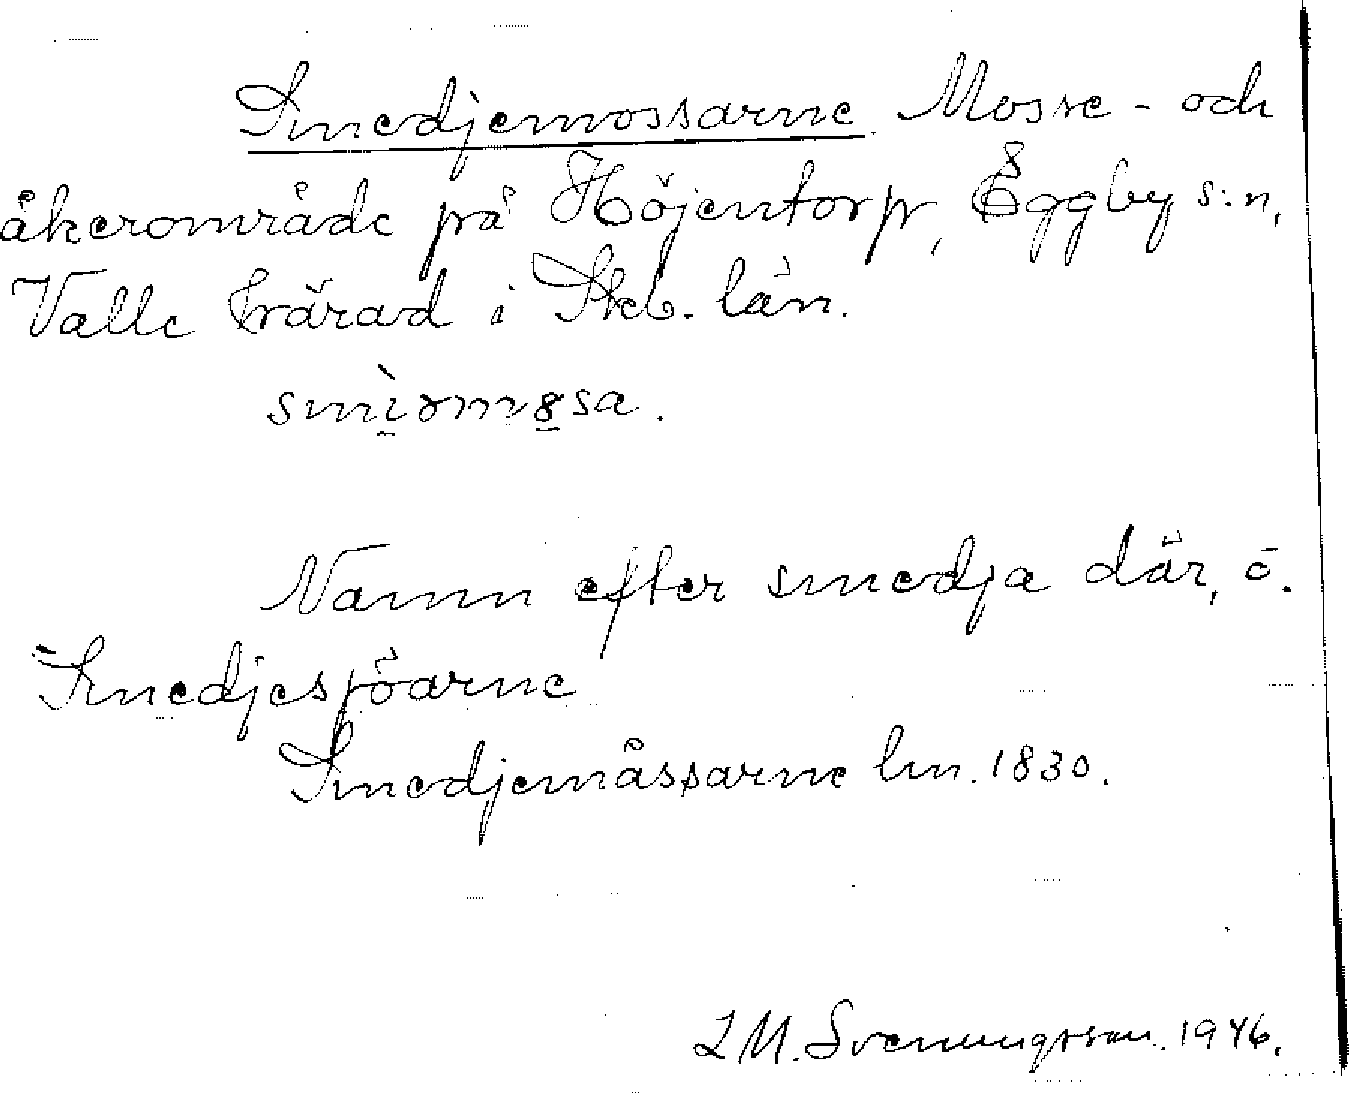 Smedjemossarne. Mosse- och
åkerområde på Höjentorp, Eggby s:n,
Valle härad i Skb. län.
smìəmɞsa.
Namn efter smedja där, ö.
Smedjesjöarne
Smedjemåssarne lm. 1830.
L M. Svenungsson. 1946.